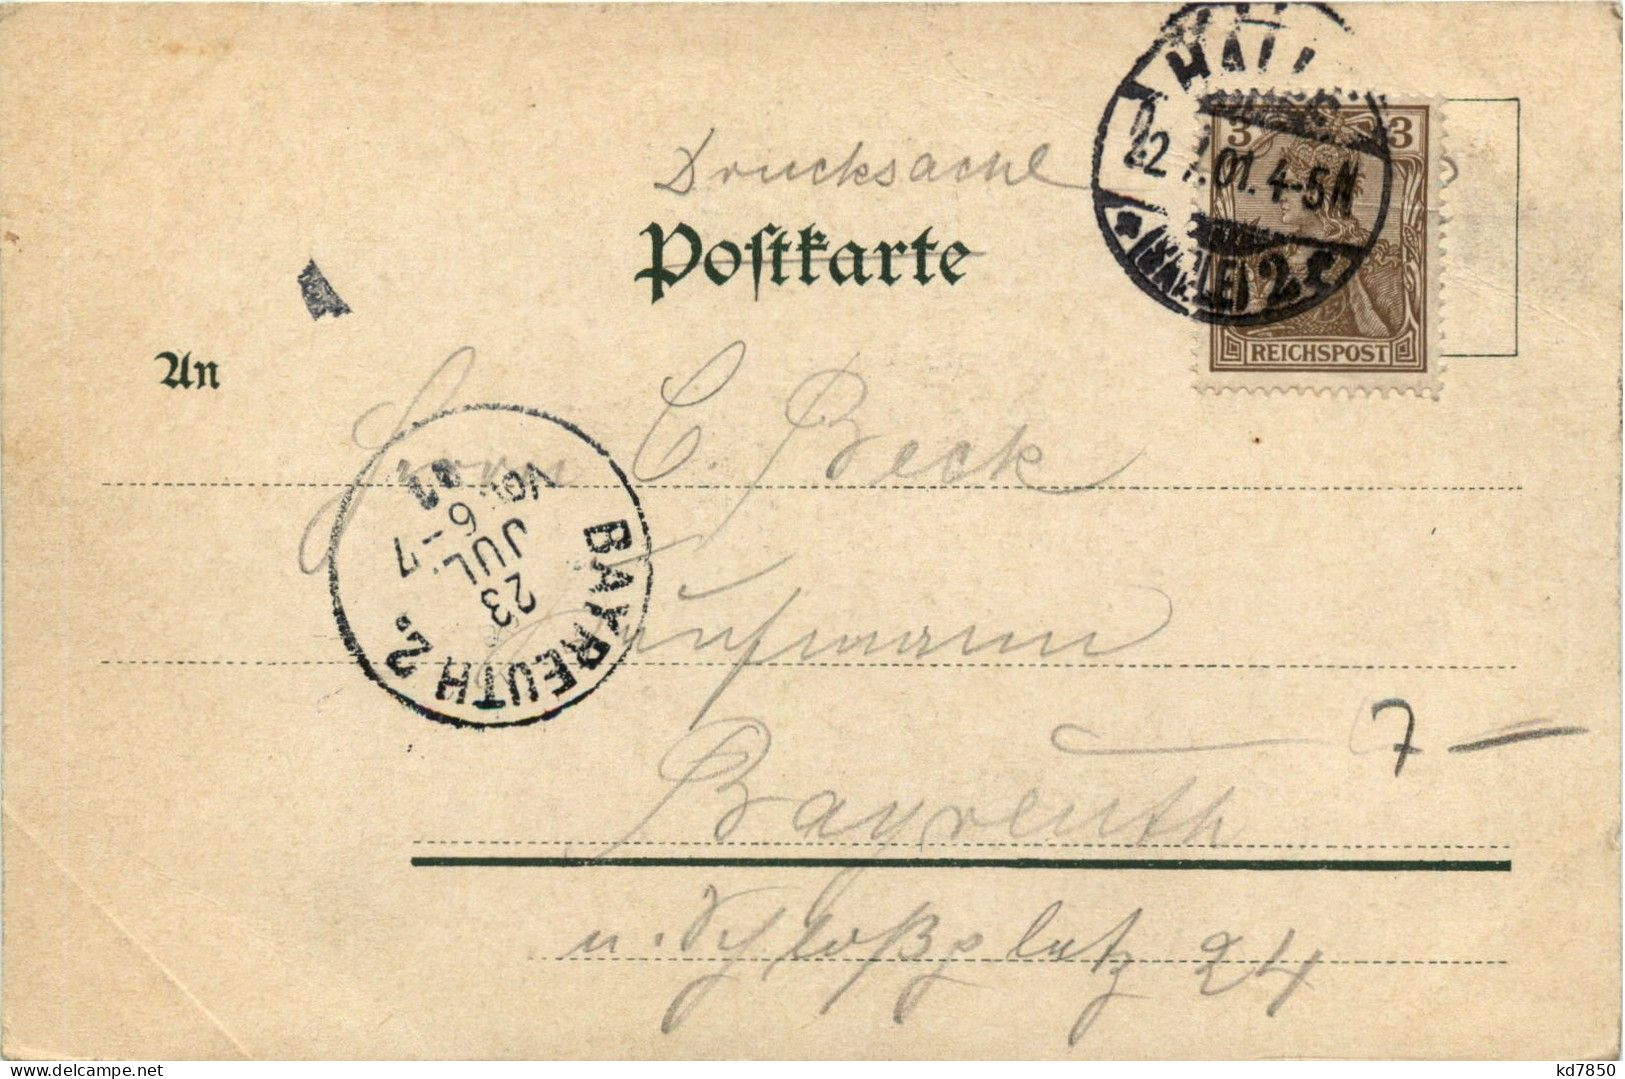 Drucksache
Postkarte
HALL
22.7.01.4-5N
(SAALE) 2
3 3
REICHSPOST
An
Herrn C. Beck
BAYREUTH 2.
23
JUL
6-7
VOR
01
Kaufmann
Bayreuth
7 —
u. Schloßplatz 24
kd7850